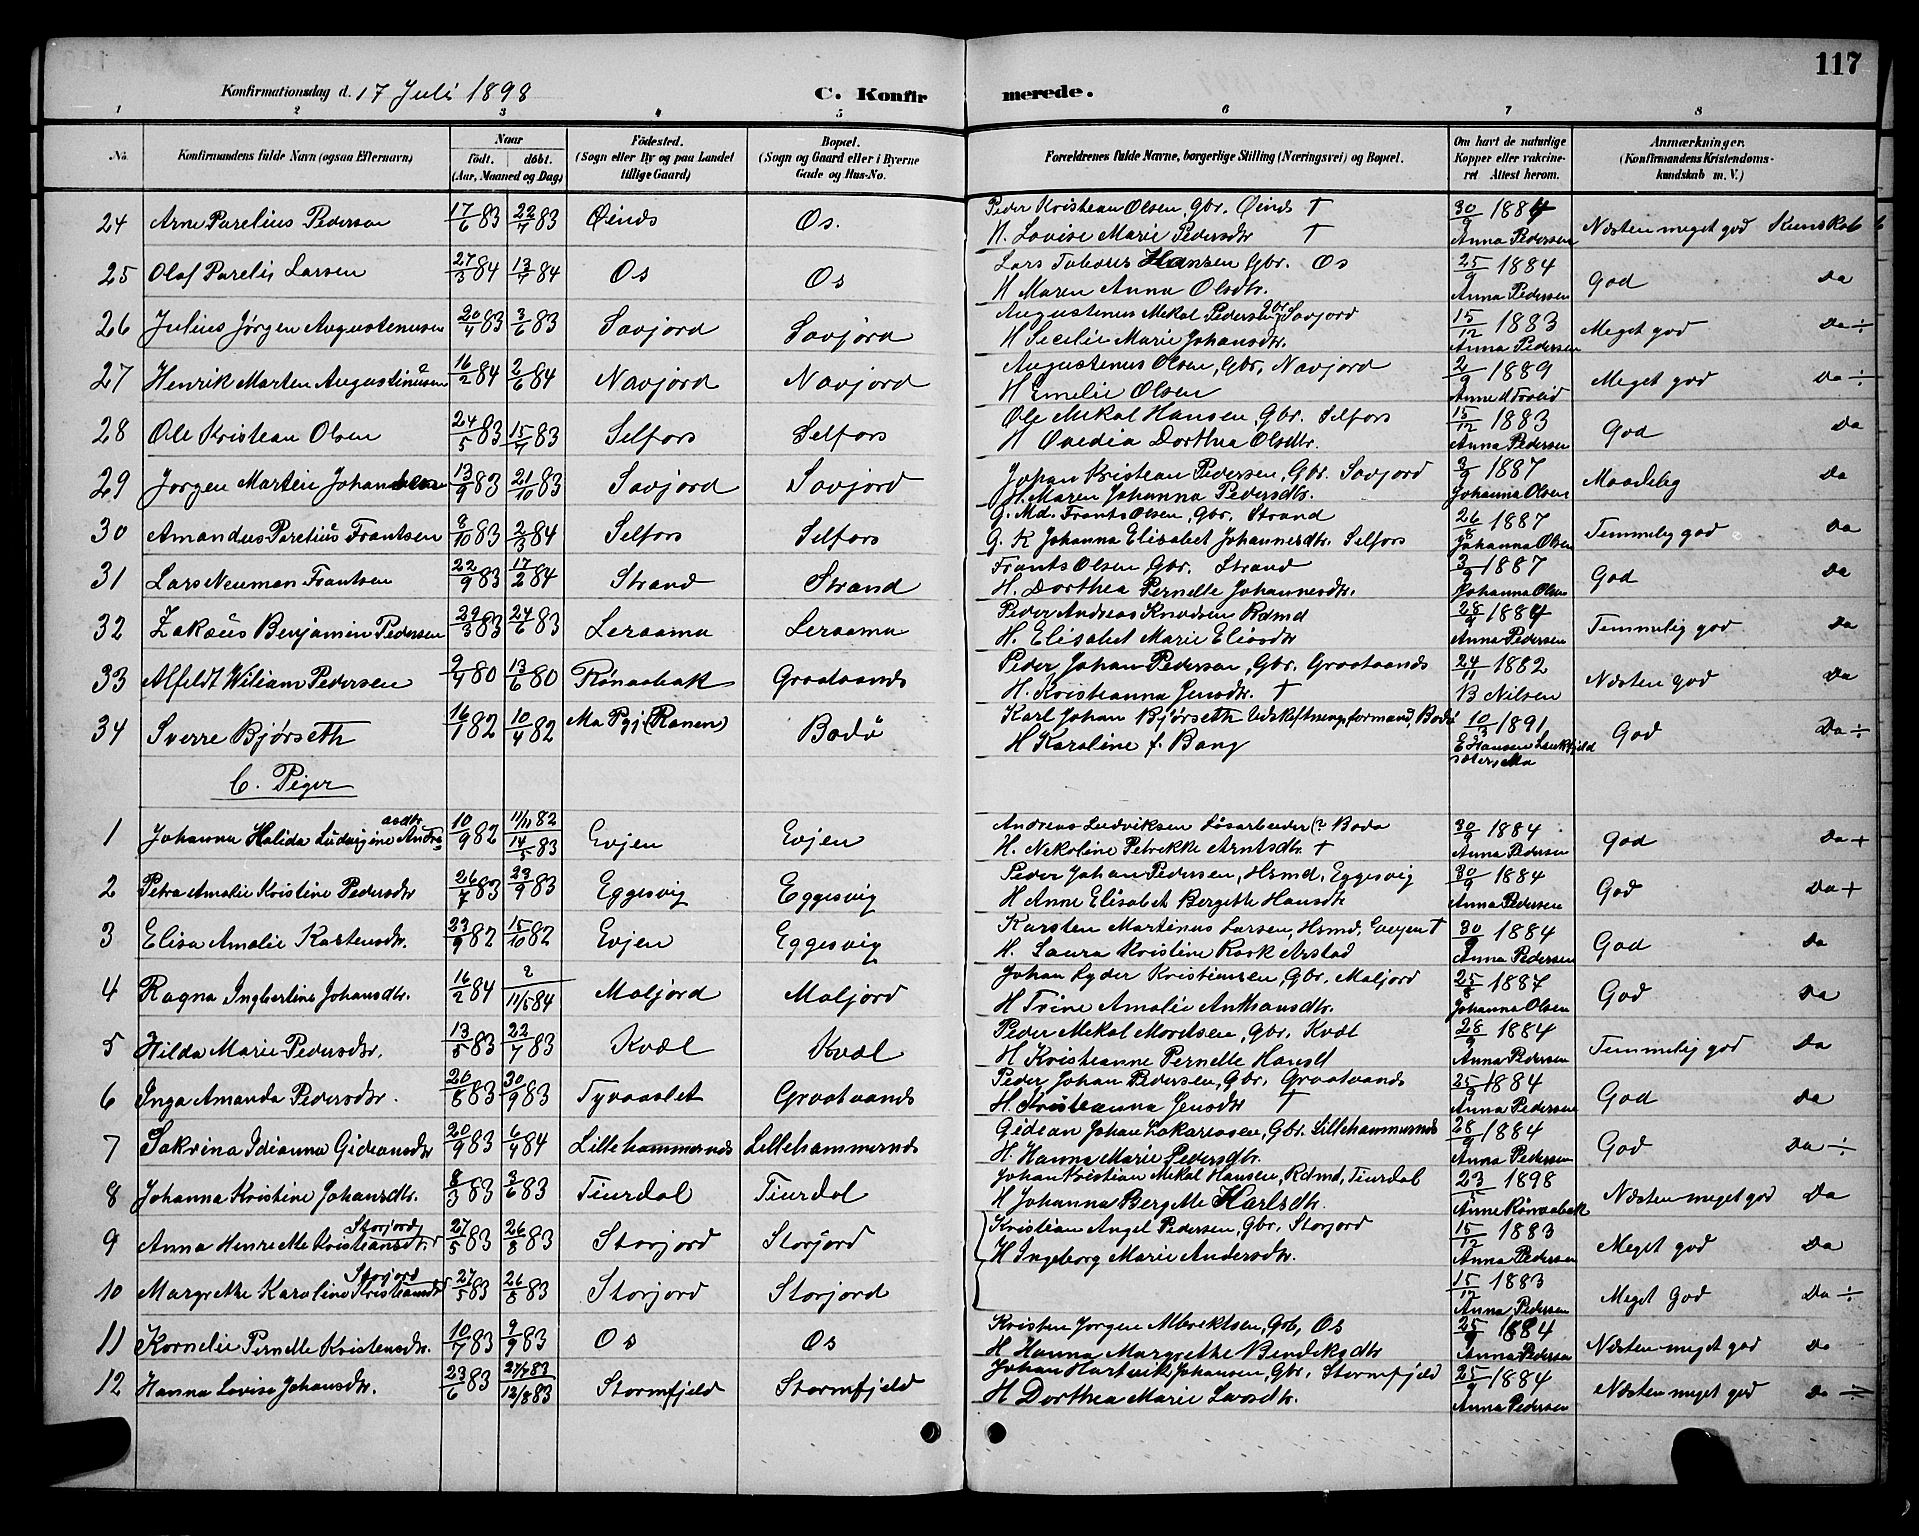 117
Konfirmationsdag d. 17 Juli 1898 C. Konfirmerede.
1 2 3 4 5 6 7 8
No. Konfirmandens fulde Navn (ogsaa Efternavn) Naar födt. döbt. (Aar, Maaned og Dag) Födested. (Sogn eller By og paa Landet tillige Gaard) Bopæl. (Sogn og Gaard eller i Byerne Gade og Hus-No. Forældrenes fulde Navne, borgerlige Stilling (Næringsvei) og Bopæl. Om havt de naturlige Kopper eller vaccineret Attest herom. Anmærkninger. (Konfirmandens Kristendomskundskab m. V.)
24 Arne Parelius Pedersen 17/6 83 22/7 83 Øinds Os. Peder Kristean Olsen, Gbr. Øinds † 30/9 1884 Næsten meget god Kunskab
H. Lovise Marie Pedersdtr † Anna Pedersen
25 Olaf Parelis Larsen 27/3 84 13/7 84 Os Os Lars Hansen Gbr. Os 25/9 1884 God Da
H Maren Anna Olsdtr. Anna Pedersen
26 Julius Jørgen Augustenusen 20/4 83 3/6 83 Savjord Savjord Augustenus Mekal Pedersen Gbr Savjord 15/12 1883 Meget god Da ÷
H Secilie Marie Johansdtr. Anna Pedersen
27 Henrik Marten Augustinusen 16/2 84 2/6 84 Navjord Navjord Augustenus Olsen, Gbr, Navjord 2/9 1889 Meget god Da ÷
H Emelie Olsen
28 Ole Kristean Olsen 24/5 83 15/7 83 Selfors Selfors Ole Mekal Hansen, Gbr. Selfors 15/12 1883 God Da
H Ovedia Dorthea Olsdtr. Anna Pedersen
29 Jørgen Martin Johansen 13/9 83 21/10 83 Savjord Savjord Johan Kristean Pedersen, Gbr. Savjord 3/9 1887 Maadelig Da
H. Maren Johanna Pedersdtr. Johanna Olsen
30 Amandus Parelius Frantsen 8/10 83 2/3 84 Selfors Selfors G. Md. Frants Olsen, Gbr. Strand 26/8 1887 Temmelig god Da
G. K Johanna Elisabet Johannesdtr. Selfors Johanna Olsen
31 Lars Neuman Frantsen 22/9 83 17/2 84 Strand Strand Frants Olsen Gbr. Strand 3/9 1887 God Da
H. Dorthea Pernelle Johannesdtr. Johanna Olsen
32 Zakæus Benjamin Pedersen 29/3 83 24/6 83 Leraamu Leraamu Peder Andreas Knudsen Rdmd 28/9 1884 Temmelig god Da
H. Elisabet Marie Eliasdtr Anna Pedersen
33 Alfeldt Wiliam Pedersen 9/4 80 13/6 80 Rønaabak Graataands Peder Johan Pedersen, Gbr. Graataands 24/11 1882 Næsten god Da
H. Kristeanna Jensdtr. † B Nilsen
34 Sverre Bjørseth 16/1 82 10/4 82 Mo Pgj (Ranen) Bodø Karl Johan Bjørseth Udskiftningsformand, Bodø 10/3 1891 God Da ÷
H Karoline f. Bang E Hansen
C. Piger
1 Johanna Halida Ludvigine Andreasdtr 10/9 82 11/11 82 14/5 83 Evjen Evjen Andreas Ludviksen Løsarbeider (? Bodø 30/9 1884 God Da +
H. Nekoline Petrekke Arntsdtr. † Anna Pedersen
2 Petra Amalie Kristine Pedersdtr 26/7 83 23/9 83 Eggesvig Eggesvig Peder Johan Pedersen, Hsmd, Eggesvig 30/9 1884 God Da +
H Anne Elisabet Bergette Hansdtr Anna Pedersen
3 Elisa Amalie Karstensdtr. 23/9 82 15/10 82 Evjen Eggesvig Karsten Martinus Larsen, Hsmd, Evejen † 30/9 1884 God Da
H. Laura Kristine Arstad Anna Pedersen
4 Ragna Ingbertine Johansdtr. 16/2 84 2 11/5 84 Maljord Maljord Johan Lyder Kristiansen, Gbr, Maljord 25/8 1887 God Da
H Trine Amalie Anthonsdtr. Johanna Olsen
5 Hilda Marie Pedersdtr. 13/5 83 22/7 83 Kvæl Kvæl Peder Mekal Mordsen, Gbr, Kvæl 28/9 1884 Temmelig god Da
H Kristeanne Pernelle Hansd Anna Pedersen
6 Inga Amanda Pedersdtr. 20/8 83 30/9 83 Tyvaaslet Graataands Peder Johan Pedersen, Gbr, Graataands 25/9 1884 God Da
H. Kristeanna Jensdtr † Anna Pedersen
7 Sakrina Ideanna Gideansdtr 20/9 83 6/4 84 Lillehammernds Lillehammernds Gidean Johan Zakariasen, Gbr. Lillehammernds 28/9 1884 God Da ÷
H. Hanna Marie Pedersdtr. Anna Pedersen
8 Johanna Kristine Johansdtr. 8/3 83 3/6 83 Tiurdal Tiurdal Johan Kristian Mekal Hansen, Rdmd, Tiurdal 23/5 1898 Næsten meget god Da
H Johanna Bergette Karlsdtr. Anne Rønaabak
9 Anna Henrette Kristiansdtr. Storjord 27/5 83 26/8 83 Storjord Storjord Kristian Angel Pedersen, Gbr, Storjord 15/12 1883 Meget god Da
H Ingeborg Marie Andersdtr. Anna Pedersen
10 Margrethe Karoline Kristiansdtr Storjord 27/5 83 26/8 83 Storjord Storjord 15/12 1883 Meget God Da ÷
Anna Pedersen
11 Kornelie Pernelle Kristensdtr. 10/7 83 9/9 83 Os Os Kristen Jørgen Albrektsen, Gbr, Os 25/9 1884 Næsten meget god Da
H Hanna Margrethe Bendeksdtr Anna Pedersen
12 Hanna Lovise Johansdtr. 23/6 83 27/7 83 12/8 83 Stormfjeld Stormfjeld Johan Hartvik Johansen, Gbr, Stormfjeld 25/9 1884 Næsten meget god Da ÷
H Dorthea Marie Larsdtr. Anna Pedersen